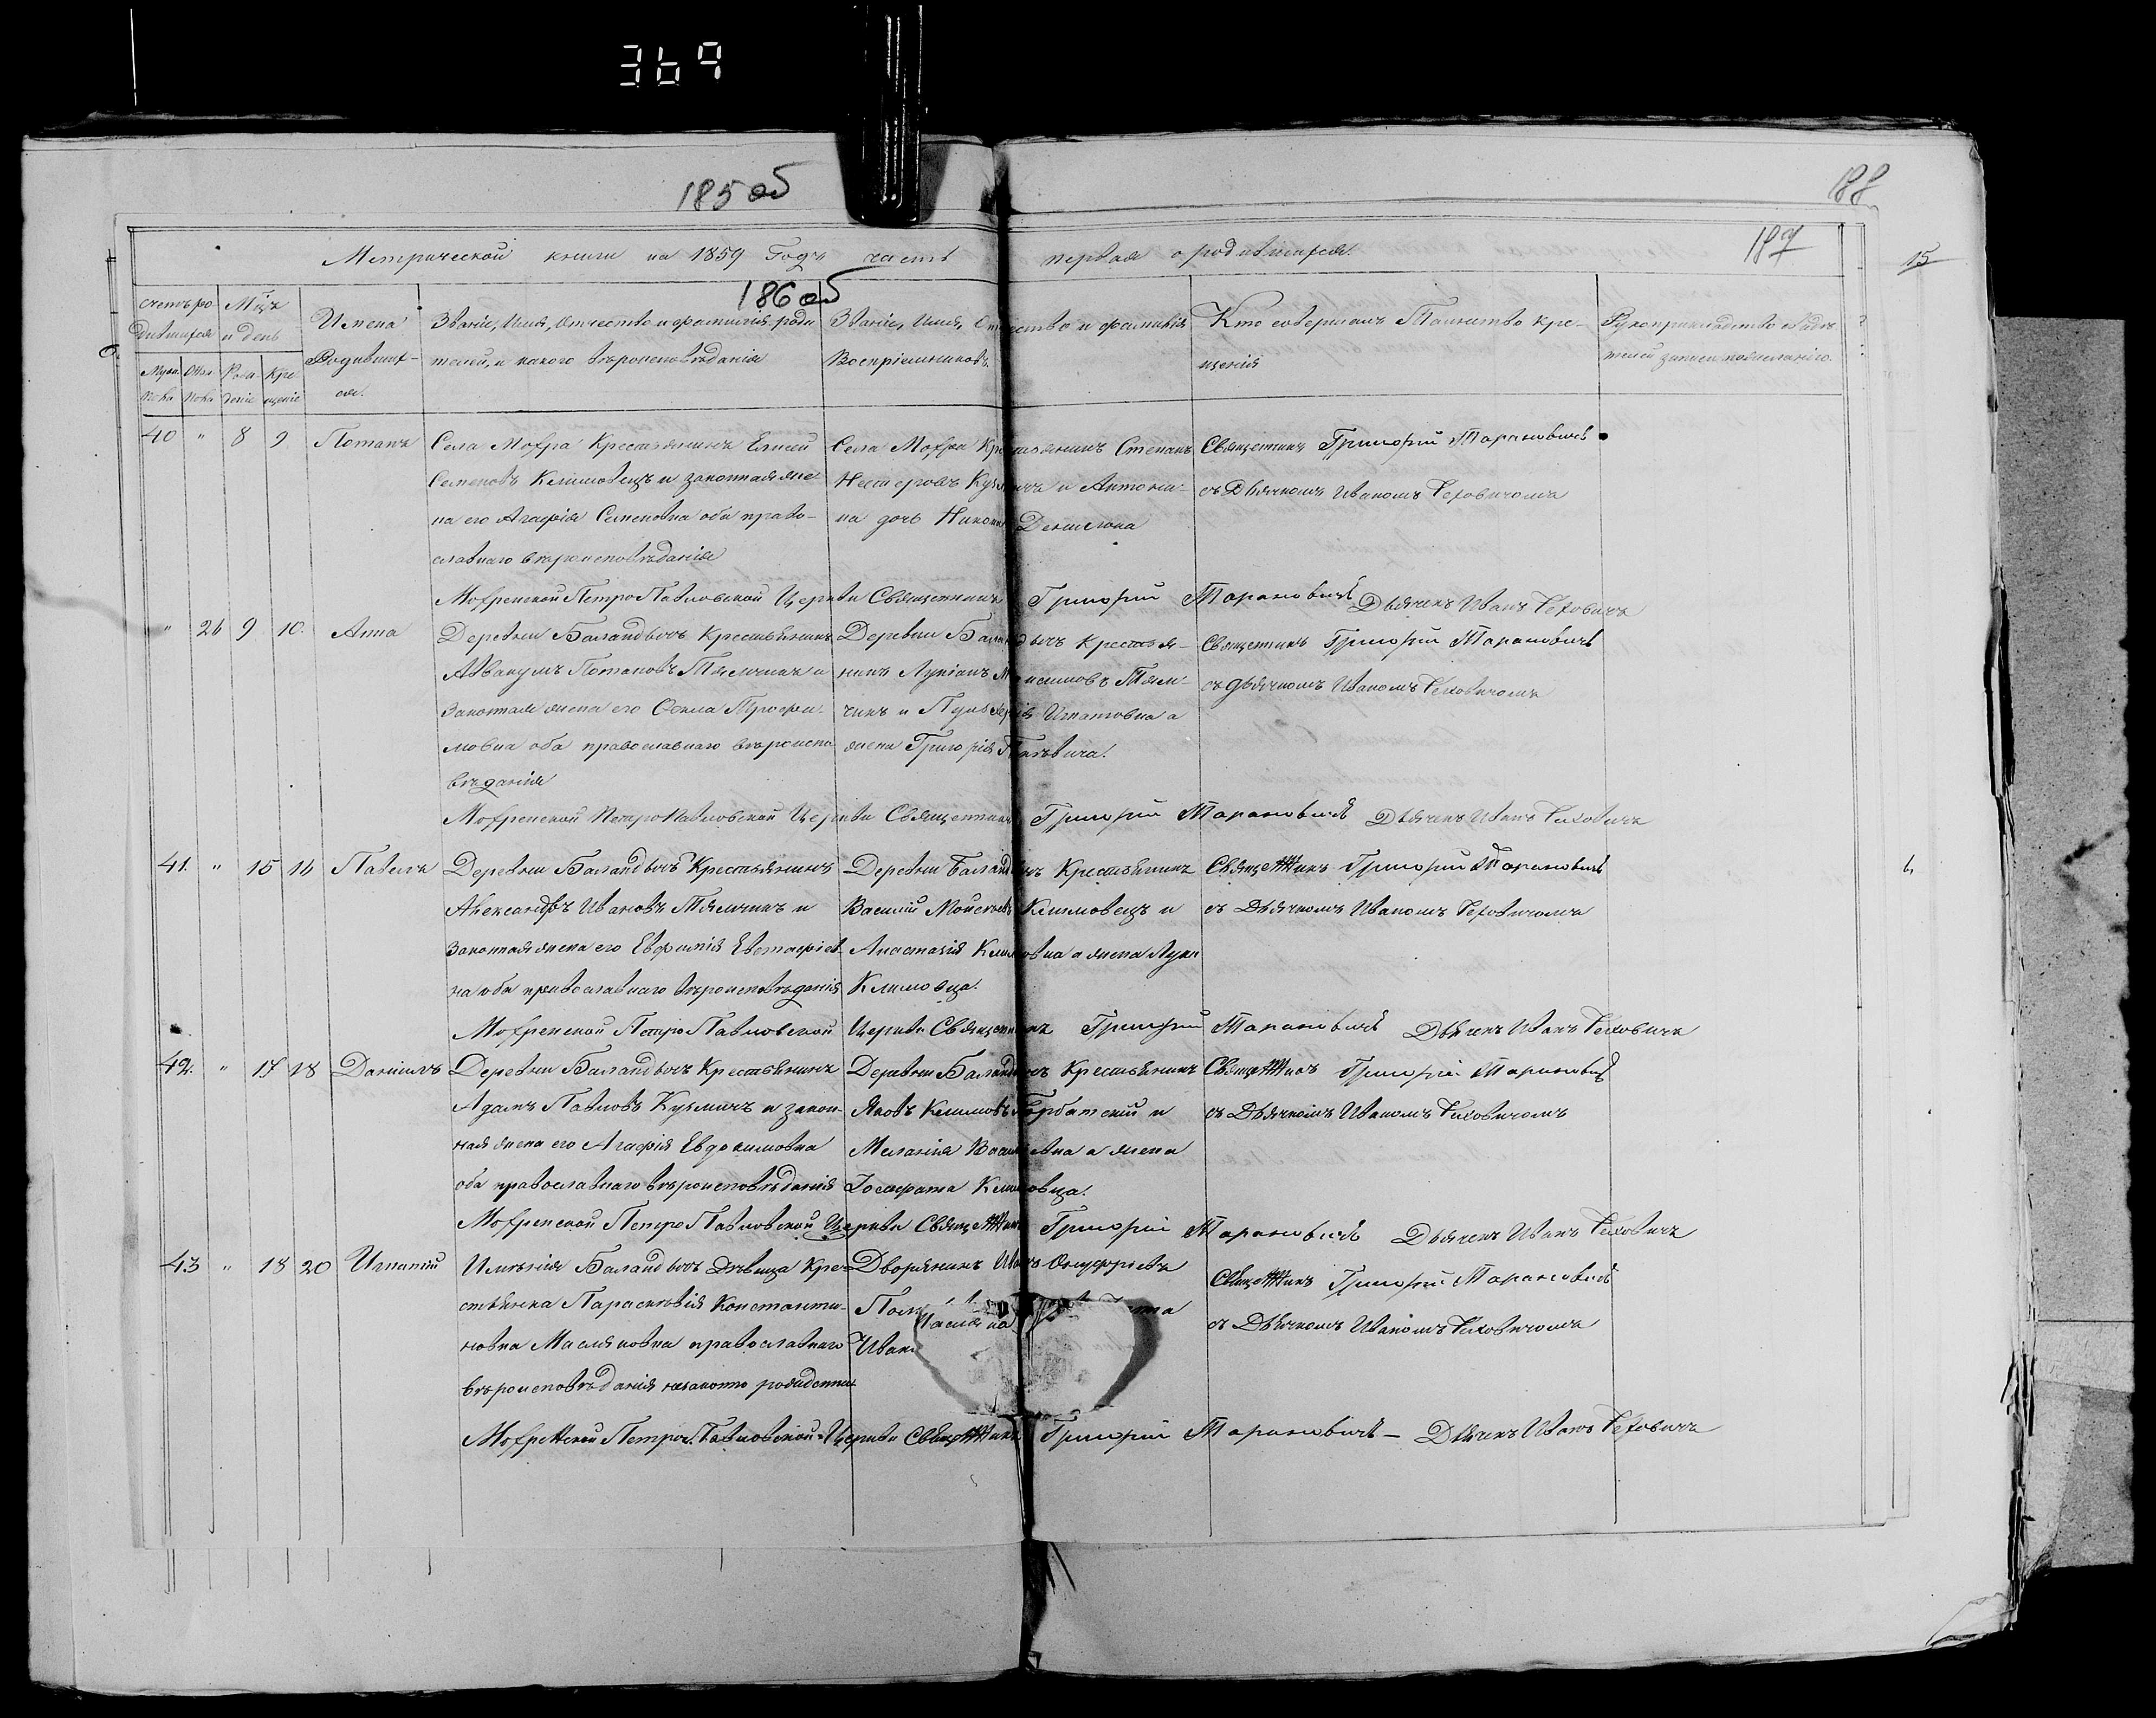 369
185 об
188
Метрической книги на 1859 Годъ часть первая о родившихся.
187
15
186 об
Счетъ родившихся
Мѣсяцъ и день
Имена Родившихся.
Званіе, Имя, Отчество и фамилія родителей, и какого вѣроисповѣданія
Званіе, Имя, Отчество и фамилія Воспріемниковъ.
Кто совершалъ Таинство крещенія
Рукоприкладство свидѣтелей записи по желанію.
40 " 8 9 Потапъ
Села Мохра Крестьянинъ Елисей
Семеновъ Климовецъ и законная жена его Агафія Семеновна оба православнаго вѣроисповѣданія
Села Мохра Крестьянинъ Степанъ
Нестеровъ и Антонина дочь
Священникъ Григорій Тарановичъ
съ Дьячкомъ Иваномъ Теховичомъ
Мохренской Петро Павловской Церкви Священникъ Григорій Тарановичъ Дьячекъ Иванъ Теховичъ
" 26 9 10. Анна
Деревни Баландычъ Крестьянинъ
Аввакумъ Потаповъ Тямчикъ и
Законная жена его Ѳекла Трофимовна оба православнаго вѣроисповѣданія
Деревни Баландычъ Крестьянинъ Лукіанъ Тямчикъ и Пульхерія Игнатовна а
жена Григорія
Священникъ Григорій Тарановичъ
съ дьячкомъ Иваномъ Теховичомъ
Мохренской ПетроПавловской Церкви Священникъ Григорій Тарановичъ Дьячекъ Иванъ Теховичъ
41. " 15 16 Павелъ
Деревни Баландычъ Крестьянинъ
Александръ Ивановъ Тямчикъ и
Законная жена его Евфимія Евстафіевна оба православнаго вѣроисповѣданія
Деревни Баландычъ Крестьянинъ
Василій Моисеевъ Климовецъ и
Анастасія Климовна а жена Луки
Климовца.
СвящеННикъ Григорій Тарановичъ
съ Дьячкомъ Иваномъ Теховичомъ
Мохренской Петро Павловской Церкви Священникъ Григорій Тарановичъ Дьячекъ Иванъ Теховичъ
42. " 17 18 Даніилъ
Деревни Баландычъ Крестьянинъ
Адамъ Павловъ Кузмичъ и законная жена его Агафія Евдокимовна
оба православнаго вѣроисповѣданія
Деревни Баландычъ Крестьянинъ
Яковъ Климовъ Горбатскій и
Меланія Васильевна а жена
Іосафата Климовца.
СвящеННикъ Григорій Тарановичъ
съ Дьячкомъ Иваномъ Теховичомъ
Мохренской Петро Павловской Церкви СвящеННикъ Григорій Тарановичъ Дьячекъ Иванъ Теховичъ
43 " 18 20 Игнатій
Имѣнія Баландычъ дѣвица Крестьянка Параскевія Константиновна Масликовна православнаго
вѣроисповѣданія незаконно рожденны
Дворянинъ Иванъ Онуфріевъ
СвящеННикъ Григорій Тарановичъ
съ Дьячкомъ Иваномъ Теховичомъ
МохреНской Петро Павловской Церкви СвящеННикъ Григорій Тарановичъ – Дьячекъ Иванъ Теховичъ